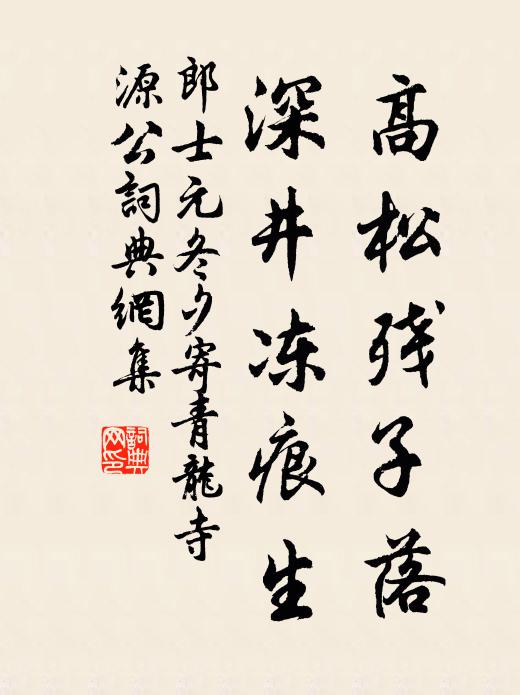 高松残子落
深井冻痕生
郎士元冬夕寄青龍寺
源公詞典網集
詞典
网印